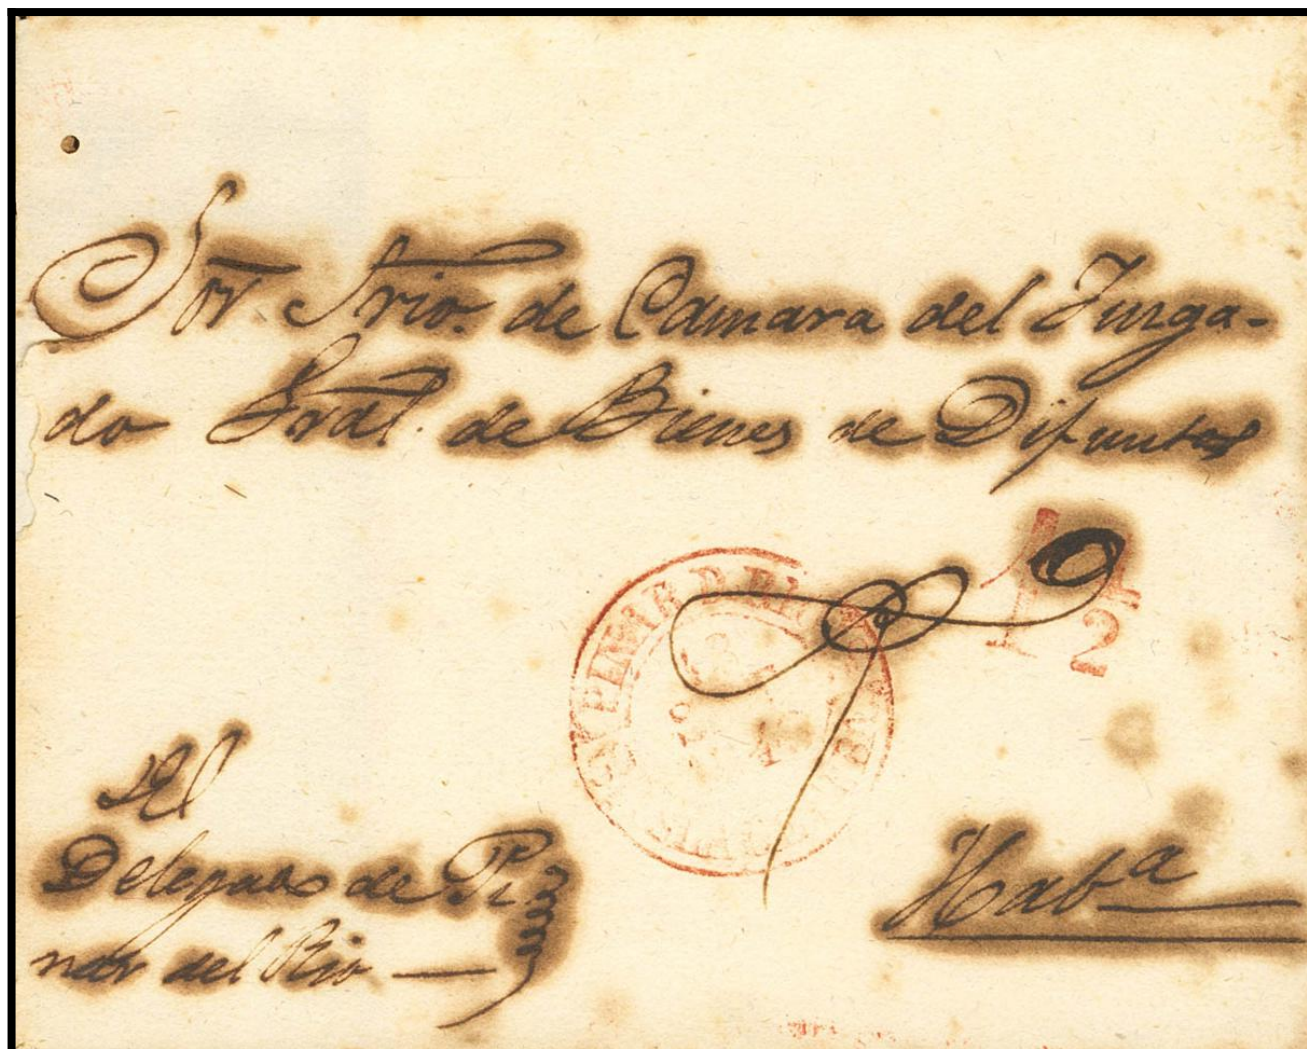 Sor. Srio. de Camara del Juzga-
do Gral. de Bienes de Difuntos
1/2
El
Delegado de Pi
nar del Rio
Haba